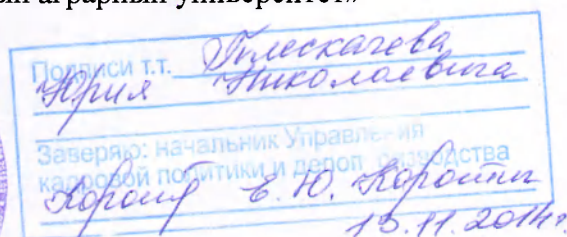 ый аграрный университет»
Подписи т.т. Плескачева
Юрия Николаевича
Заверяю: начальник Управления
кадровой политики и делопроизводства
Е. Ю.
13.11.2014г.